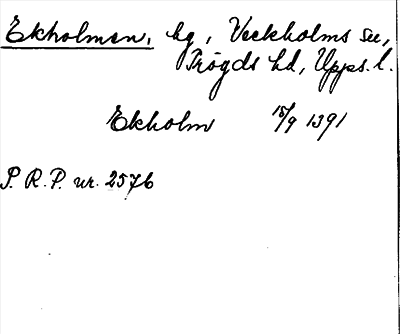 Ekholmen, hg, Veckholms sn,
Trögds hd, Upps. l.
Ekholm 15/9 1391
P. R. P. nr. 2576